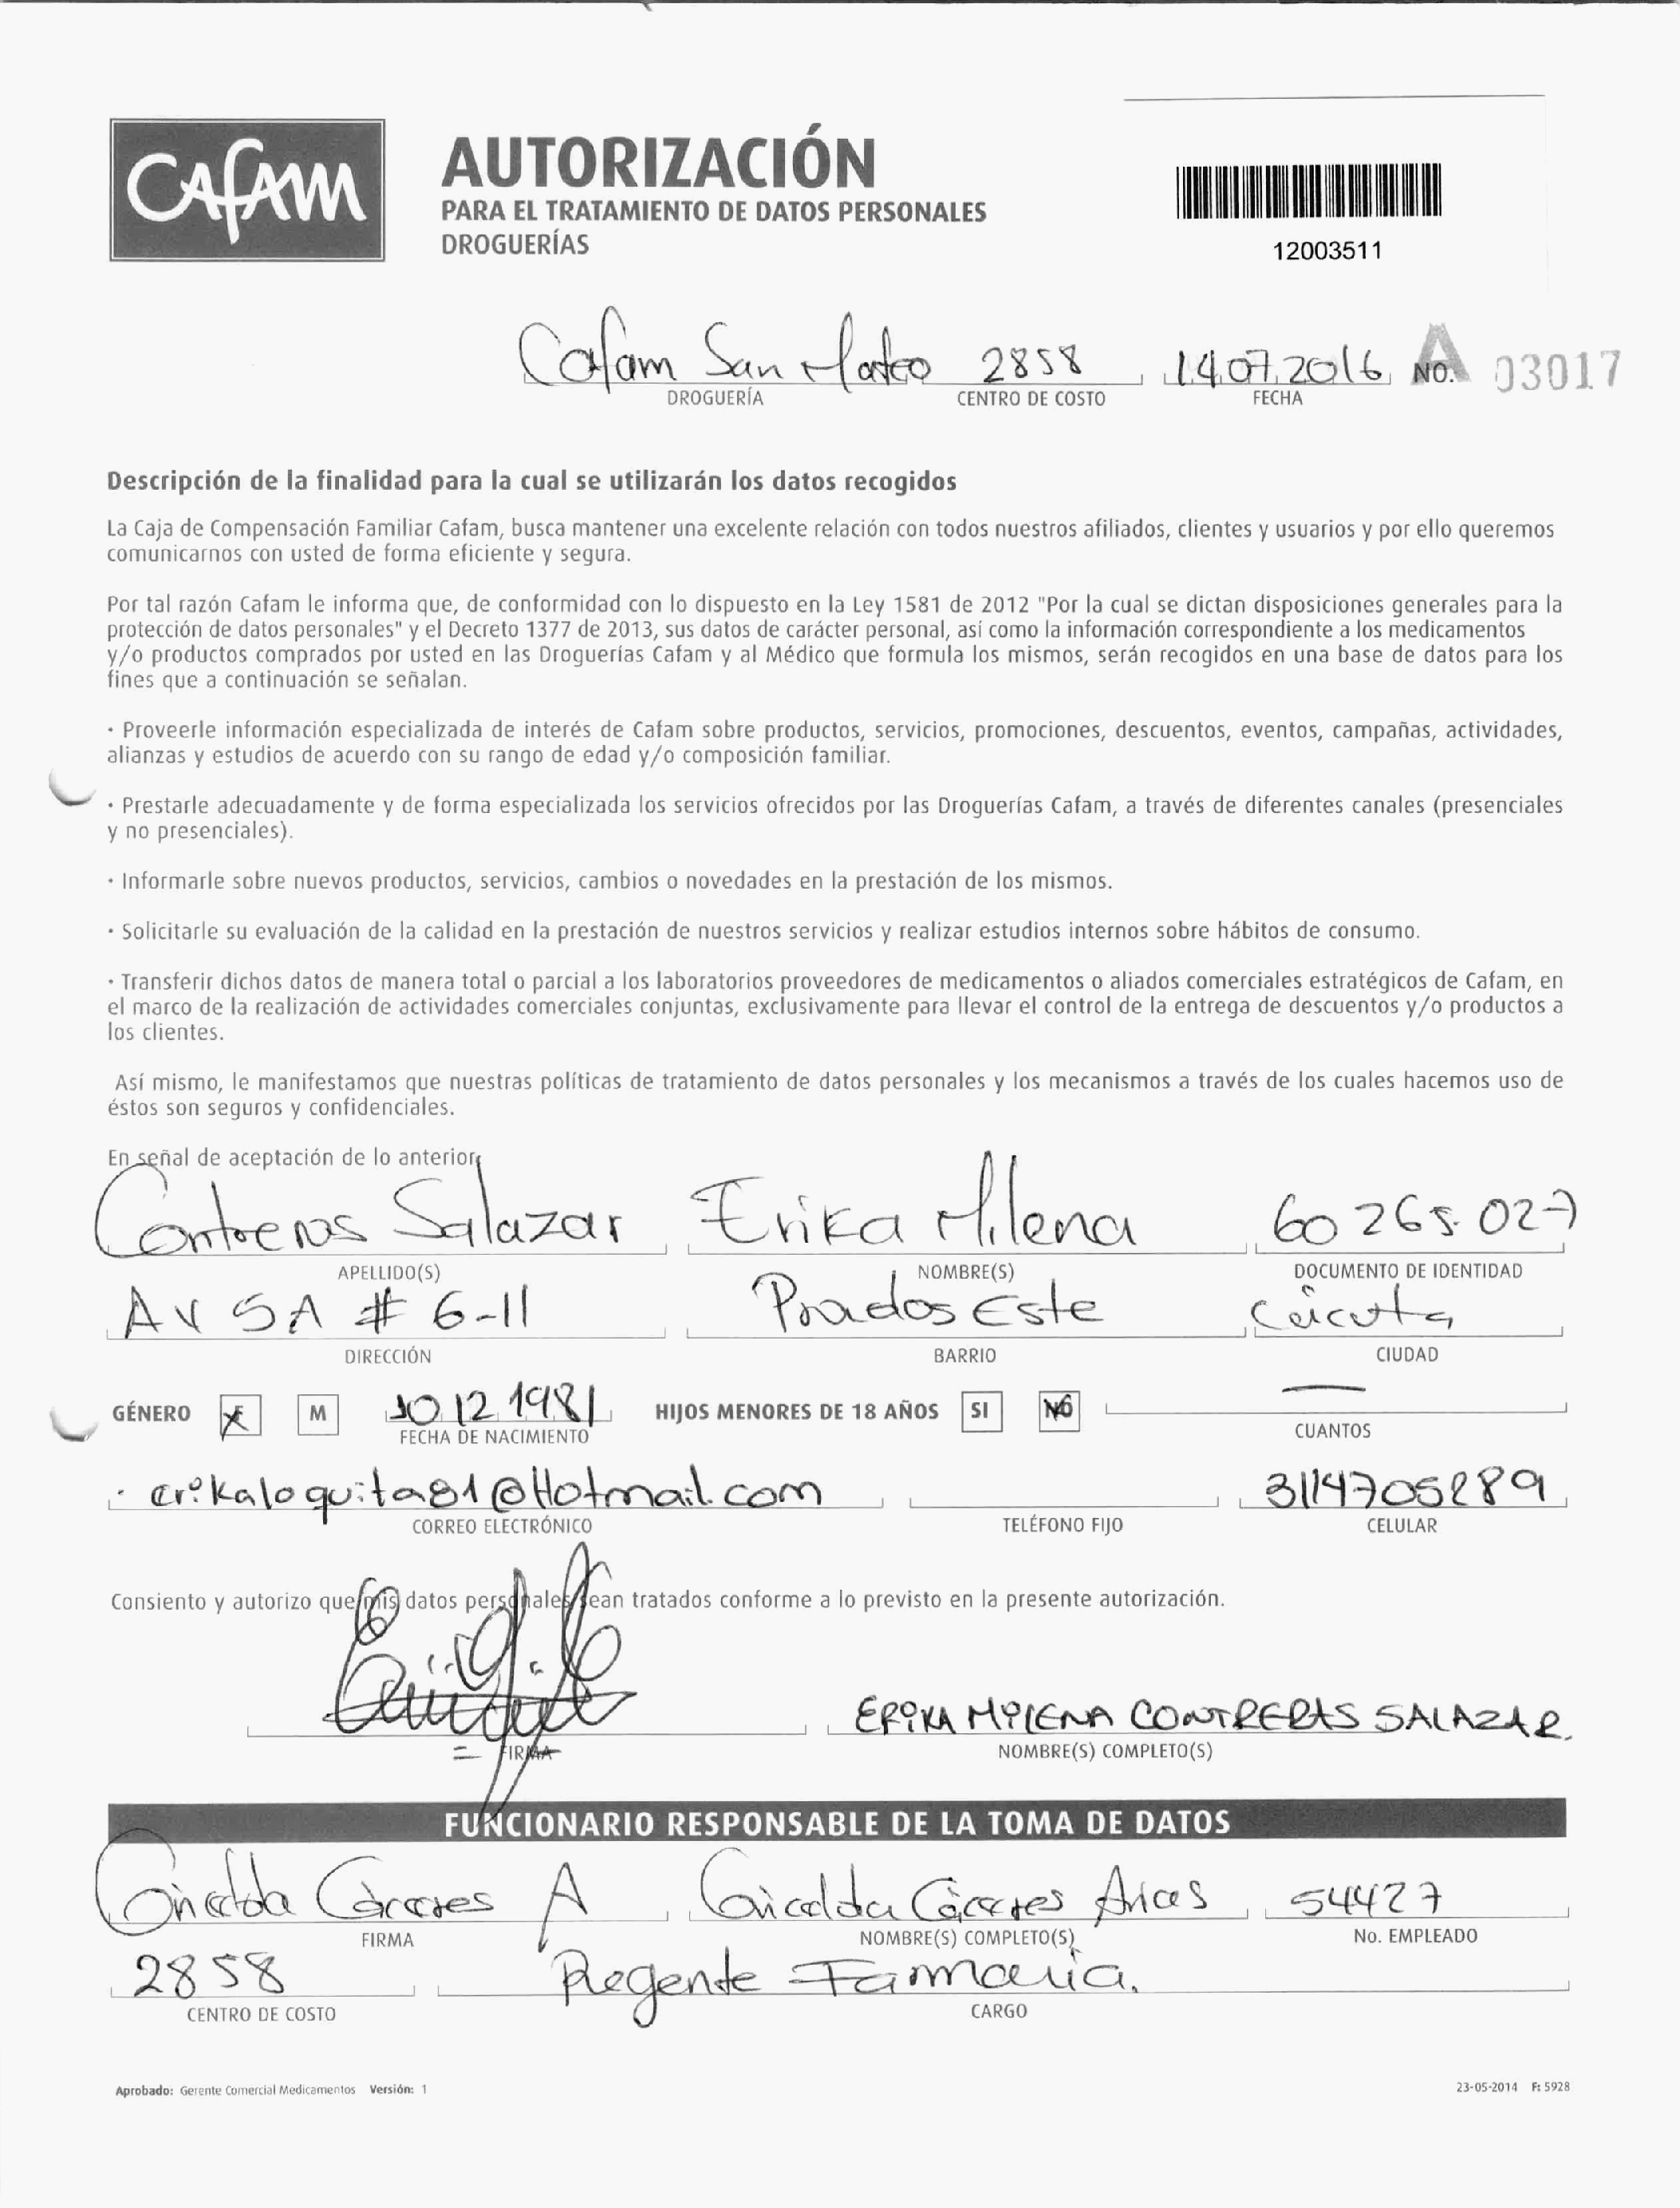 CAFAM
AUTORIZACIÓN
PARA EL TRATAMIENTO DE DATOS PERSONALES
DROGUERÍAS
12003511
Cafam San Mateo 2858 14 07 2016 A No. 03017
DROGUERÍA CENTRO DE COSTO FECHA
Descripción de la finalidad para la cual se utilizarán los datos recogidos
La Caja de Compensación Familiar Cafam, busca mantener una excelente relación con todos nuestros afiliados, clientes y usuarios y por ello queremos
comunicarnos con usted de forma eficiente y segura.
Por tal razón Cafam le informa que, de conformidad con lo dispuesto en la Ley 1581 de 2012 "Por la cual se dictan disposiciones generales para la
protección de datos personales" y el Decreto 1377 de 2013, sus datos de carácter personal, así como la información correspondiente a los medicamentos
y/o productos comprados por usted en las Droguerías Cafam y al Médico que formula los mismos, serán recogidos en una base de datos para los
fines que a continuación se señalan.
· Proveerle información especializada de interés de Cafam sobre productos, servicios, promociones, descuentos, eventos, campañas, actividades,
alianzas y estudios de acuerdo con su rango de edad y/o composición familiar.
· Prestarle adecuadamente y de forma especializada los servicios ofrecidos por las Droguerías Cafam, a través de diferentes canales (presenciales
y no presenciales).
· Informarle sobre nuevos productos, servicios, cambios o novedades en la prestación de los mismos.
· Solicitarle su evaluación de la calidad en la prestación de nuestros servicios y realizar estudios internos sobre hábitos de consumo.
· Transferir dichos datos de manera total o parcial a los laboratorios proveedores de medicamentos o aliados comerciales estratégicos de Cafam, en
el marco de la realización de actividades comerciales conjuntas, exclusivamente para llevar el control de la entrega de descuentos y/o productos a
los clientes.
Así mismo, le manifestamos que nuestras políticas de tratamiento de datos personales y los mecanismos a través de los cuales hacemos uso de
éstos son seguros y confidenciales.
En señal de aceptación de lo anterior,
Contreras Salazar Erika Milena 60265.027
APELLIDO(S) NOMBRE(S) DOCUMENTO DE IDENTIDAD
AV 5A # 6-11 Prados Este Cúcuta
DIRECCIÓN BARRIO CIUDAD
GÉNERO F M 10 12 1981 HIJOS MENORES DE 18 AÑOS SI NO —
FECHA DE NACIMIENTO CUANTOS
erikaloquita81@Hotmail.com 3114705289
CORREO ELECTRÓNICO TELÉFONO FIJO CELULAR
Consiento y autorizo que mis datos personales sean tratados conforme a lo previsto en la presente autorización.
ERIKA MILENA CONTRERAS SALAZAR.
FIRMA NOMBRE(S) COMPLETO(S)
FUNCIONARIO RESPONSABLE DE LA TOMA DE DATOS
Cáceres A Cáceres Arias 54427
FIRMA NOMBRE(S) COMPLETO(S) No. EMPLEADO
2858 Regente Farmacia.
CENTRO DE COSTO CARGO
Aprobado: Gerente Comercial Medicamentos Versión: 1 23-05-2014 F: 5928